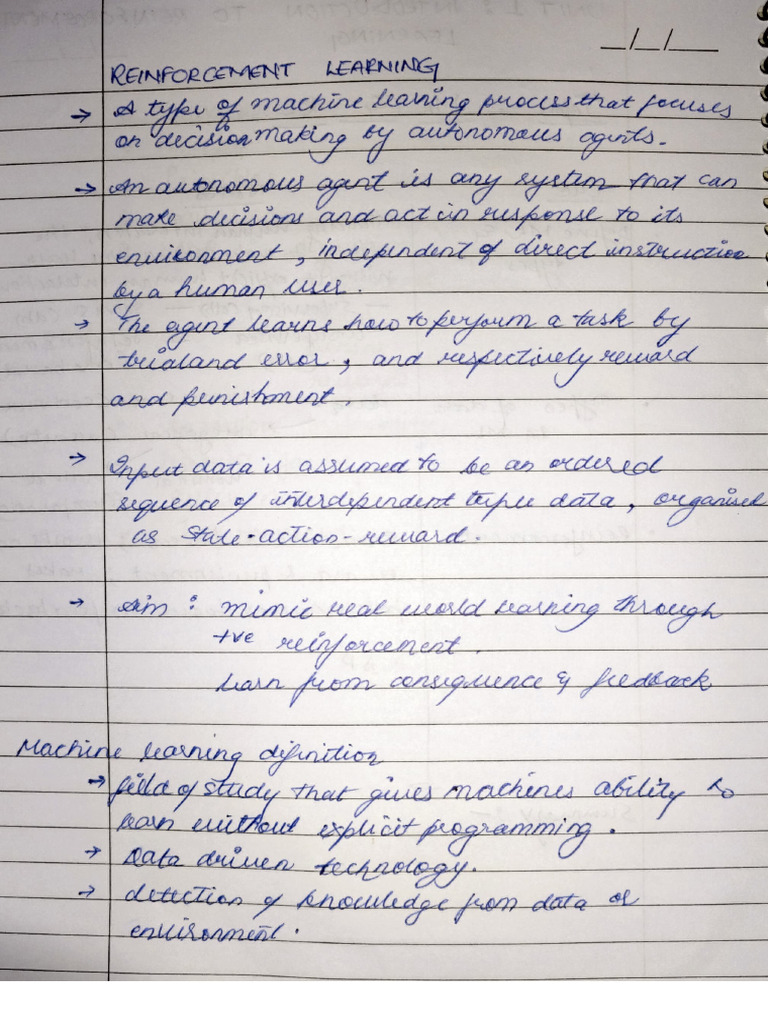 __/__/__
REINFORCEMENT LEARNING
→ A type of machine learning process that focuses
on decision making by autonomous agents.
→ An autonomous agent is any system that can
make decisions and act in response to its
environment, independent of direct instruction
by a human user.
→ The agent learns how to perform a task by
trial and error, and respectively reward
and punishment.
→ Input data is assumed to be an ordered
sequence of interdependent tuple data, organised
as state-action-reward.
→ Aim : mimic real world learning through
+ve reinforcement.
learn from consequence & feedback
Machine learning definition
→ field of study that gives machines ability to
learn without explicit programming.
→ Data driven technology.
→ detection of knowledge from data or
environment.